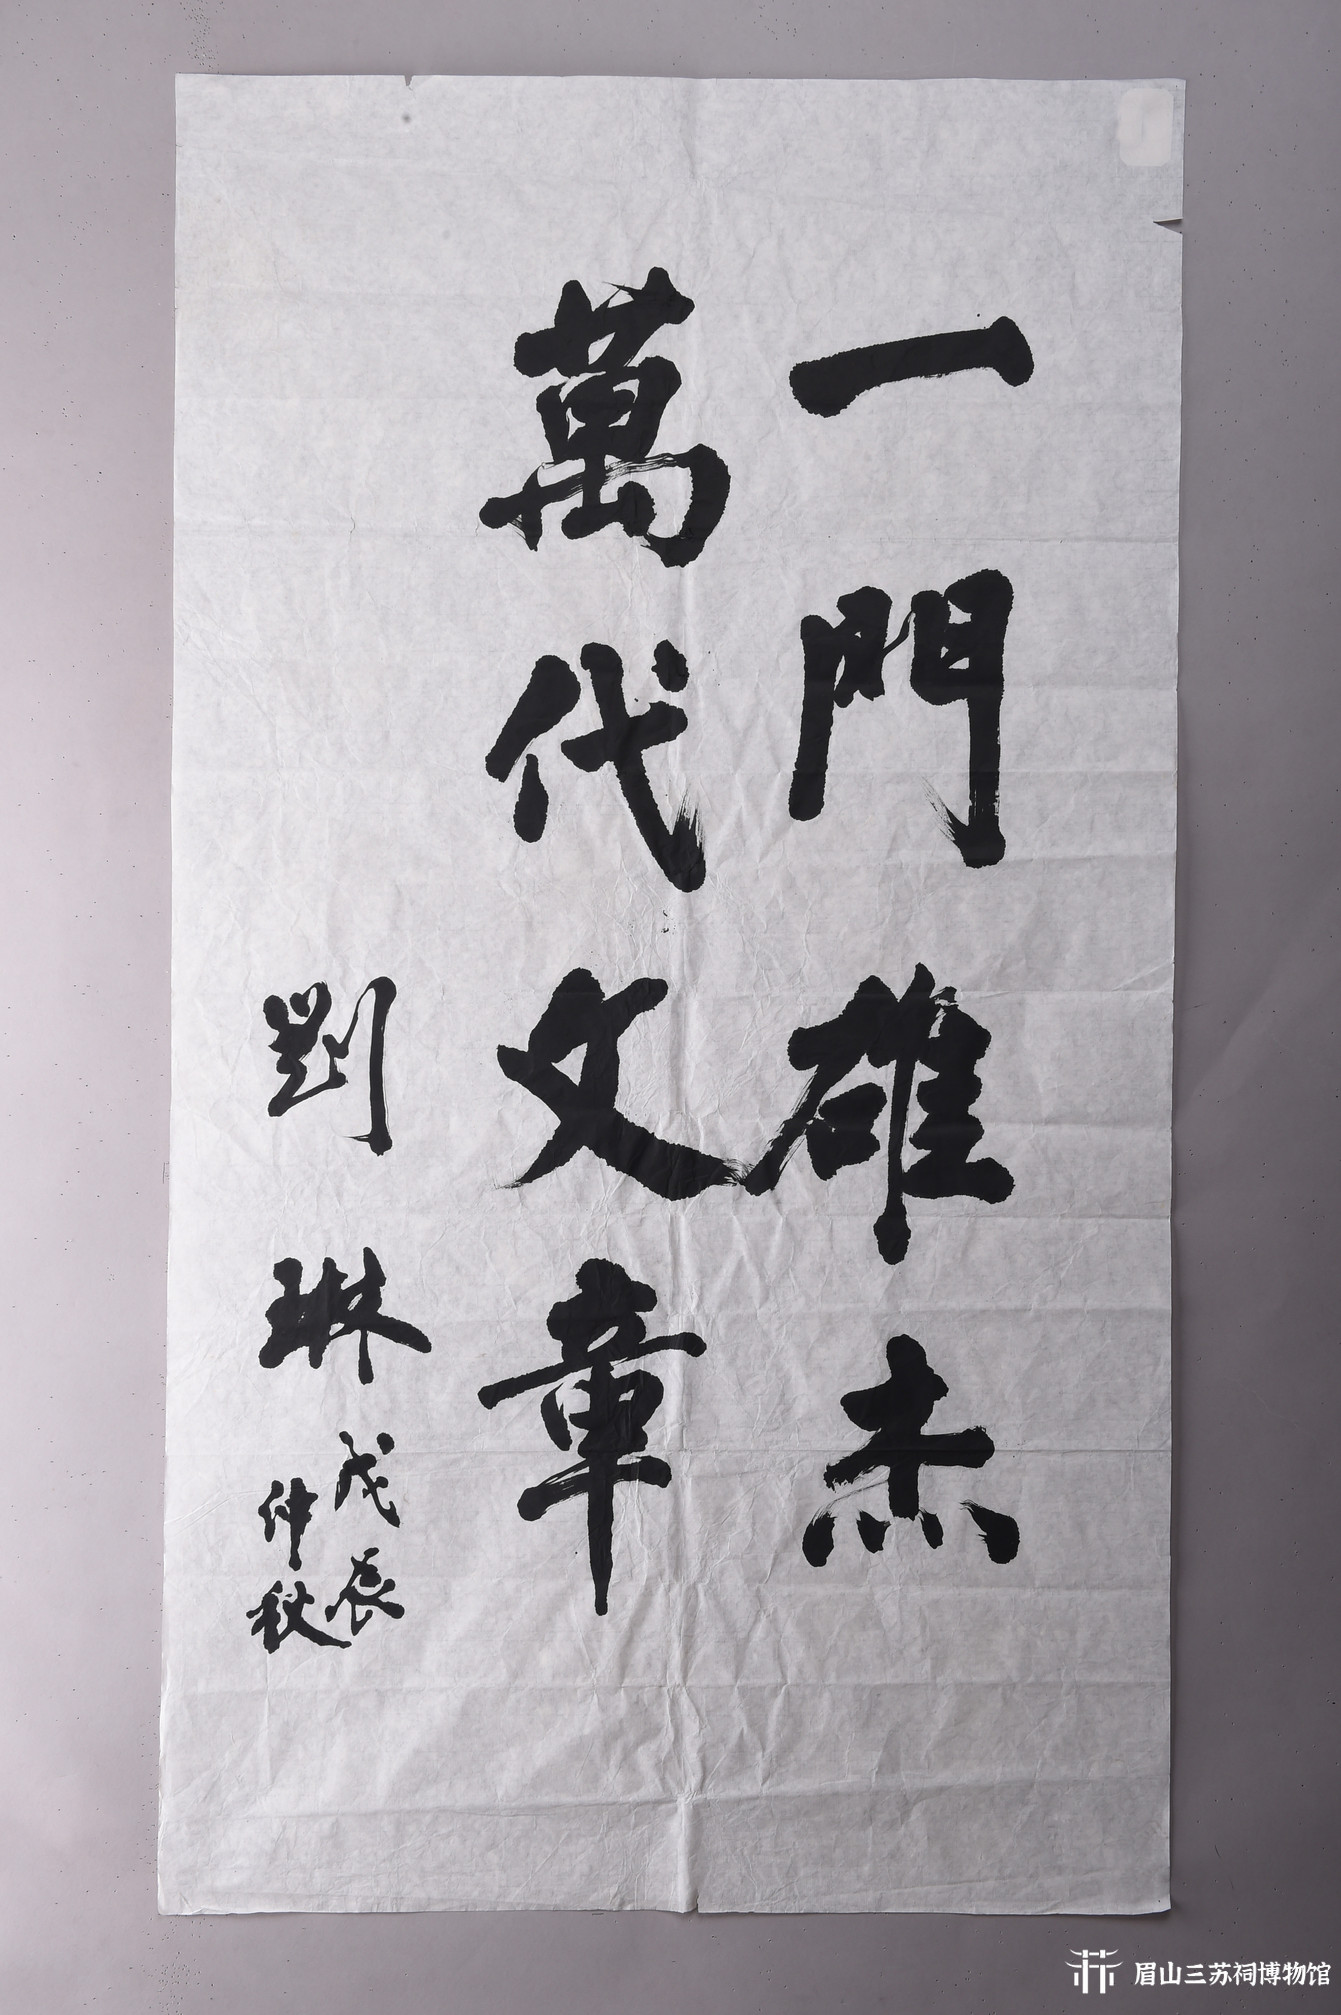 一門雄杰
萬代文章
劉琳
戊辰
仲秋
眉山三苏祠博物馆